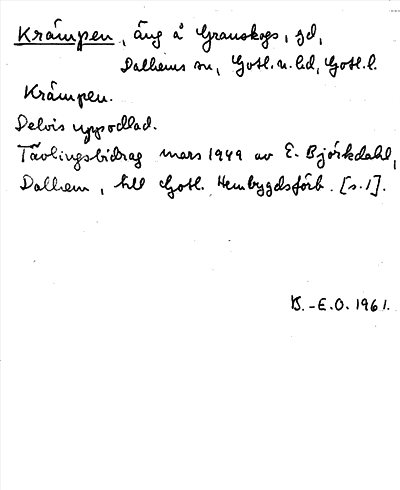 Krämpen, äng å Granskogs, gd,
Dalhems sn, Gotl. n. hd, Gotl. l.
Krämpen.
Delvis uppodlad.
Tävlingsbidrag mars 1949 av E. Björkdahl,
Dalhem, till Gotl. Hembygdsförb. [s. 1].
B.-E.O. 1961.